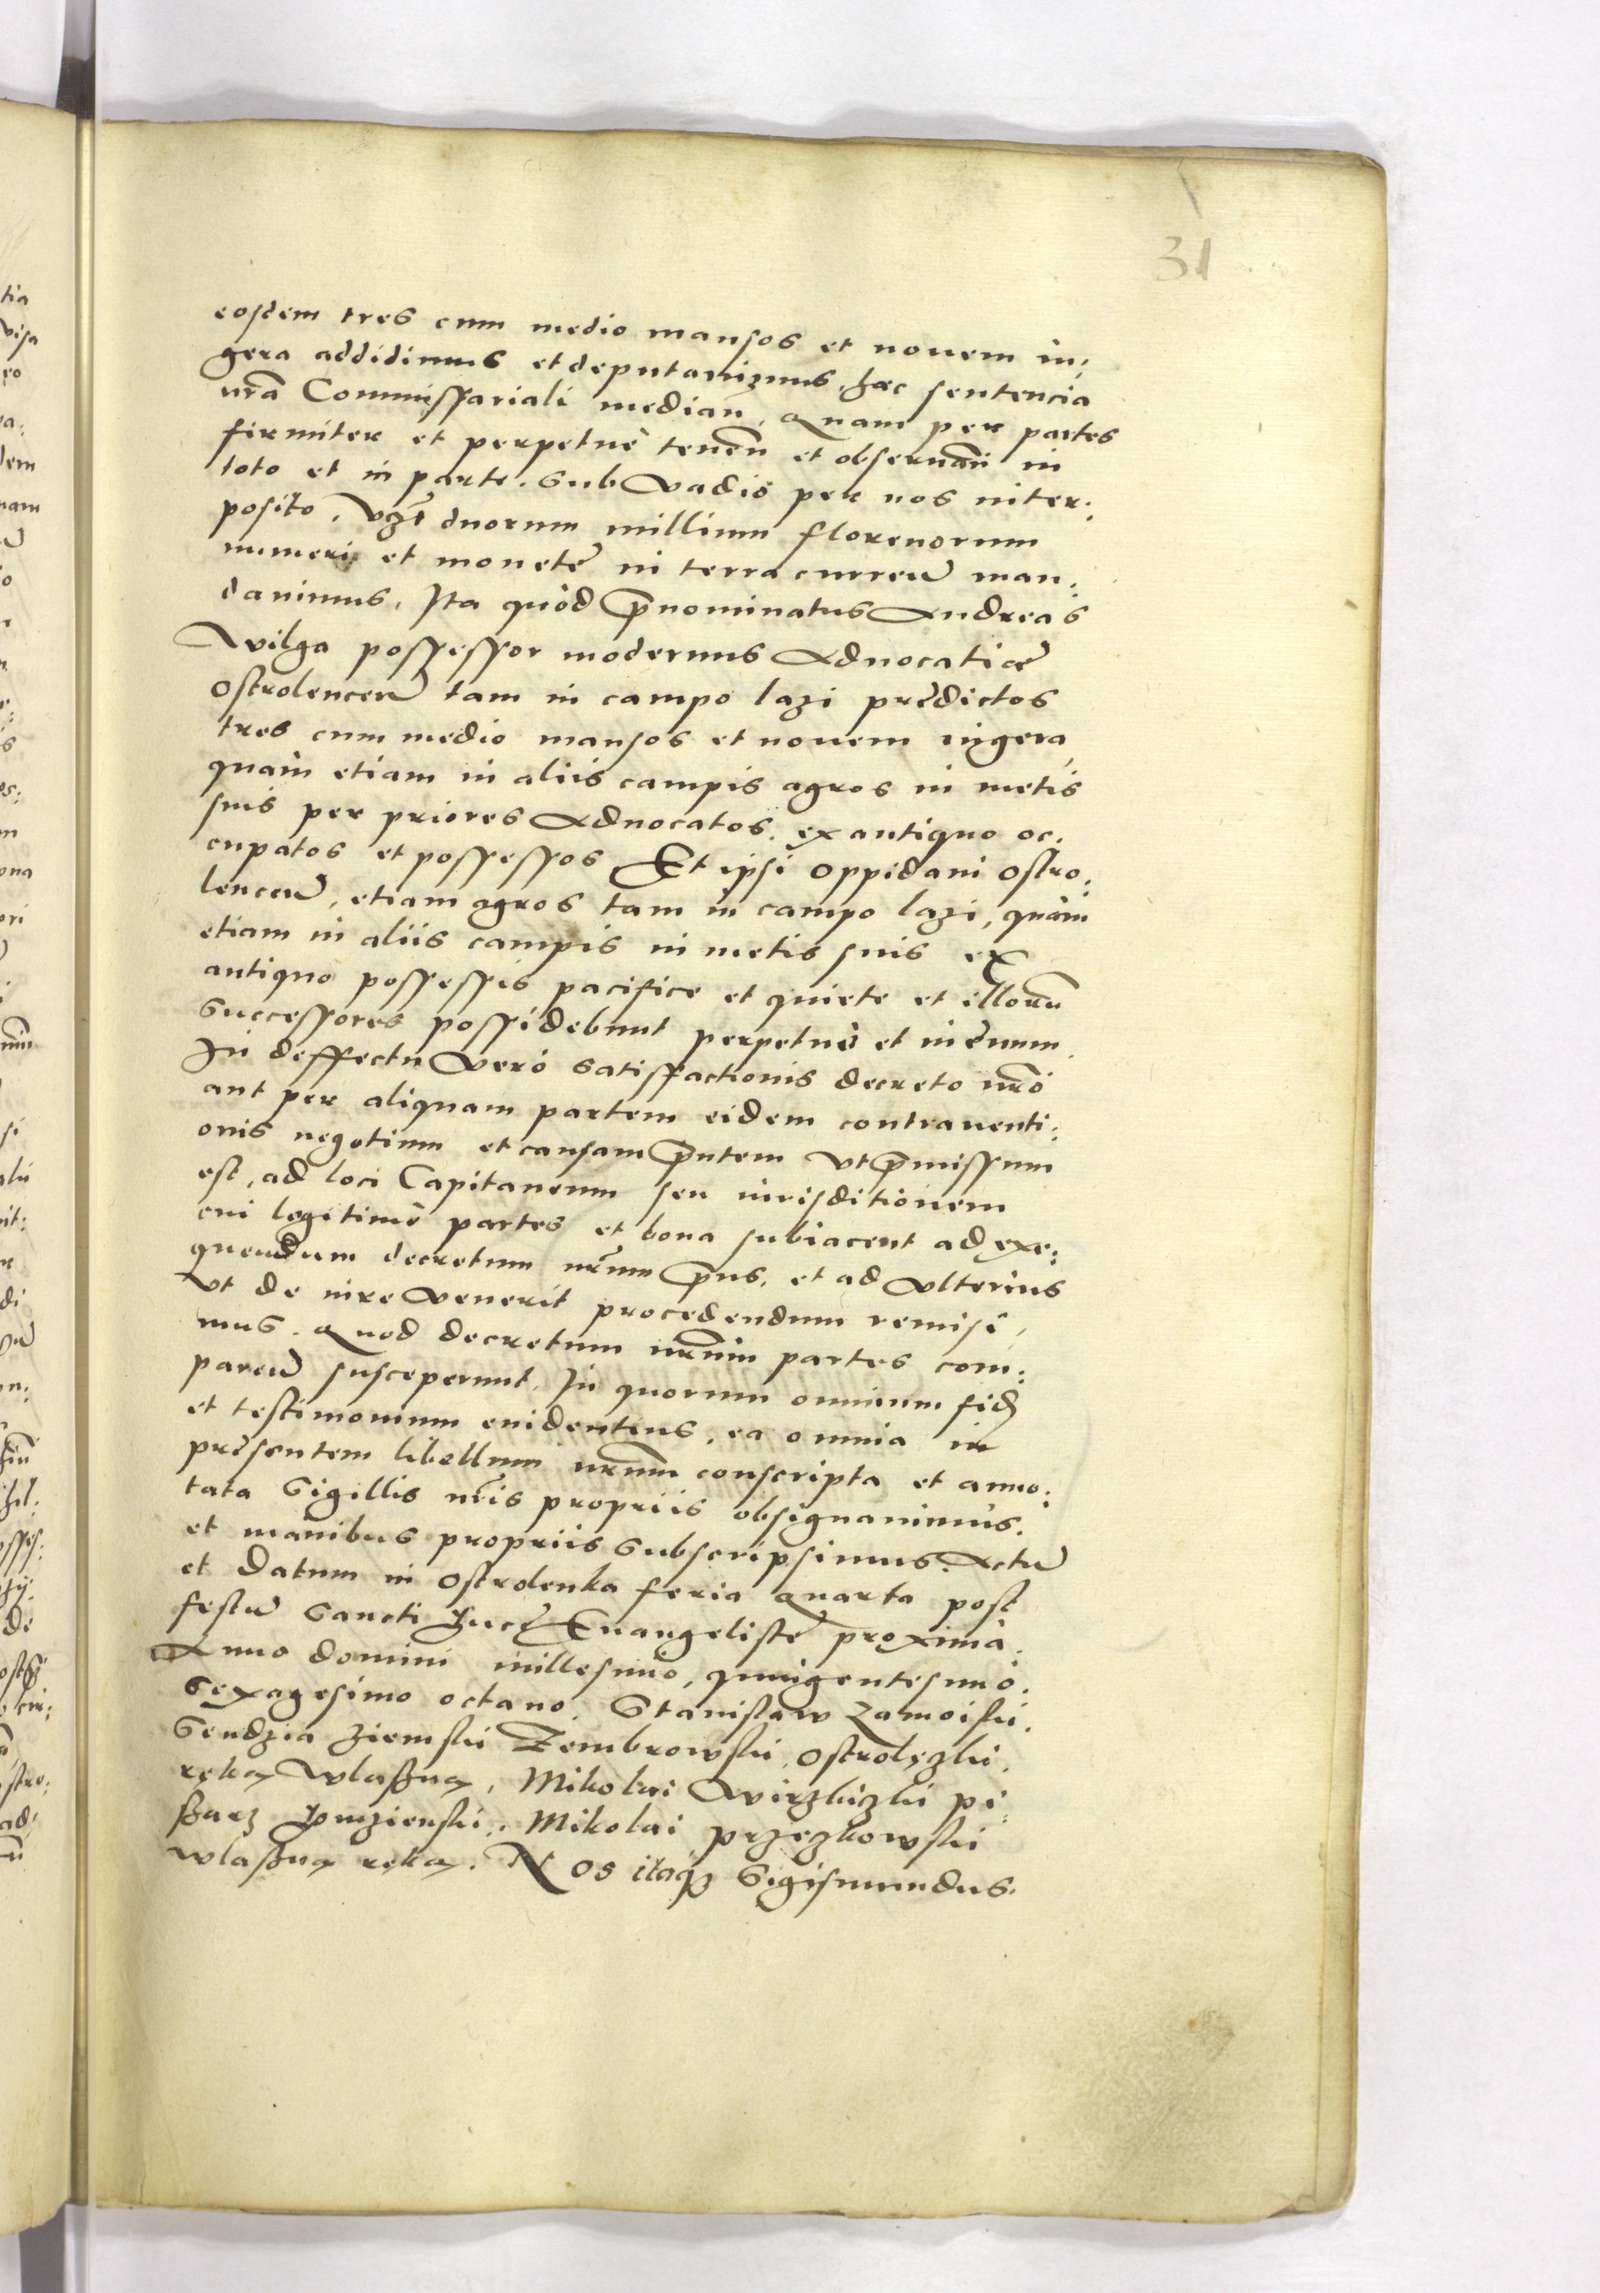 31
eosdem tres cum medio mansos et nouem iu:
gera addidimus et deputauimus, hac sentencia
nr̃a Commissariali median̄. Quam per partes
firmiter et perpetuè tenen̄ et obseruan̄ in
toto et in parte. sub Vadio per nos inter:
posito. Vz̃t duorum millium florenorum
numeri et monetę in terra curren̄ man:
dauimus, Ita quòd p̄nominatus Andreas
Wilga possessor modernus Aduocatiæ
Ostrolencen̄ tam in campo lazi prędictos
tres cum medio mansos et nouem iugera,
quàm etiam in aliis campis agros in metis
suis per priores Aduocatos ex antiquo oc:
cupatos et possessos Et ipsi oppidani Ostro:
lencen̄, etiam agros tam in campo lazi, quàm
etiam in aliis campis in metis suis ex
antiquo possessis pacifice et quiete et illorum̄
successores possidebunt perpetuò et in ęuum.
In deffectu Vero satisffactionis decreto nr̃o
aut per aliquam partem eidem contrauenti:
onis negotium et causam p̄ntem Vt p̄missum
est, ad loci Capitaneum seu iurisditionem
cui legitimè partes et bona subiacent ad exe:
quendum decretum nr̃um p̄ns. et ad Vlterius
Vt de iure Venerit procedendum remisi:
mus. Quod decretum nr̃um partes com:
paren̄ susceperunt. In quorum omnium fid̄
et testimonium euidentius, ea omnia in
pręsentem libellum nr̃um conscripta et anno:
tata Sigillis nr̃is propriis obsignauimus.
et manibus propriis subscripsimus. Actū
et Datum in Ostrolenka feria quarta post
festū Sancti Lucę Euangelistę proxima.
Anno domini millesimo, quingentesimo.
Sexagesimo octauo. Stanisław Zamoiski.
Sendzia ziemski Zembrowski, Ostrolęzki.
ręką własną, Mikolai Wirzbiczki pi:
sarz Lomzienski. Mikolai przezkowski
własną ręką. Nos itaq̃ Sigismundus.